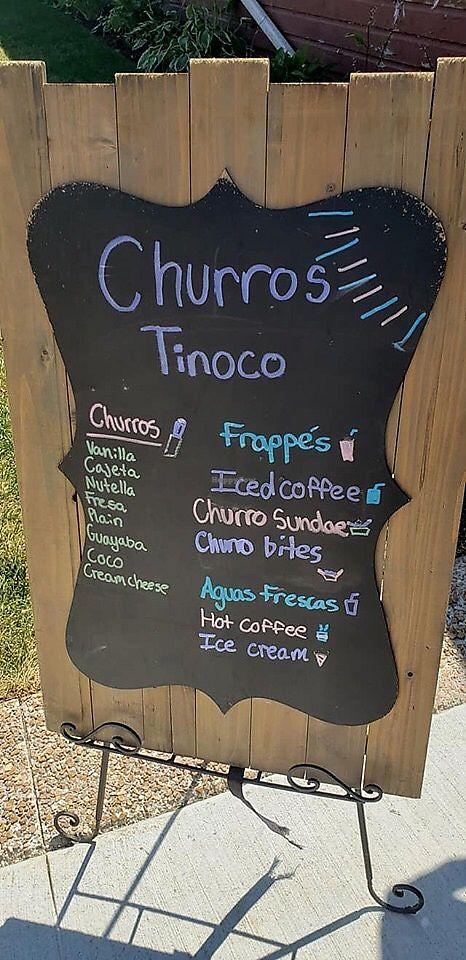 Churros
Tinoco
Churros
Vanilla
Cajeta
Nutella
Fresa
Plain
Guayaba
Coco
Cream cheese
Frappés
Iced coffee
Churro Sundae
Churro bites
Aguas Frescas
Hot coffee
Ice cream